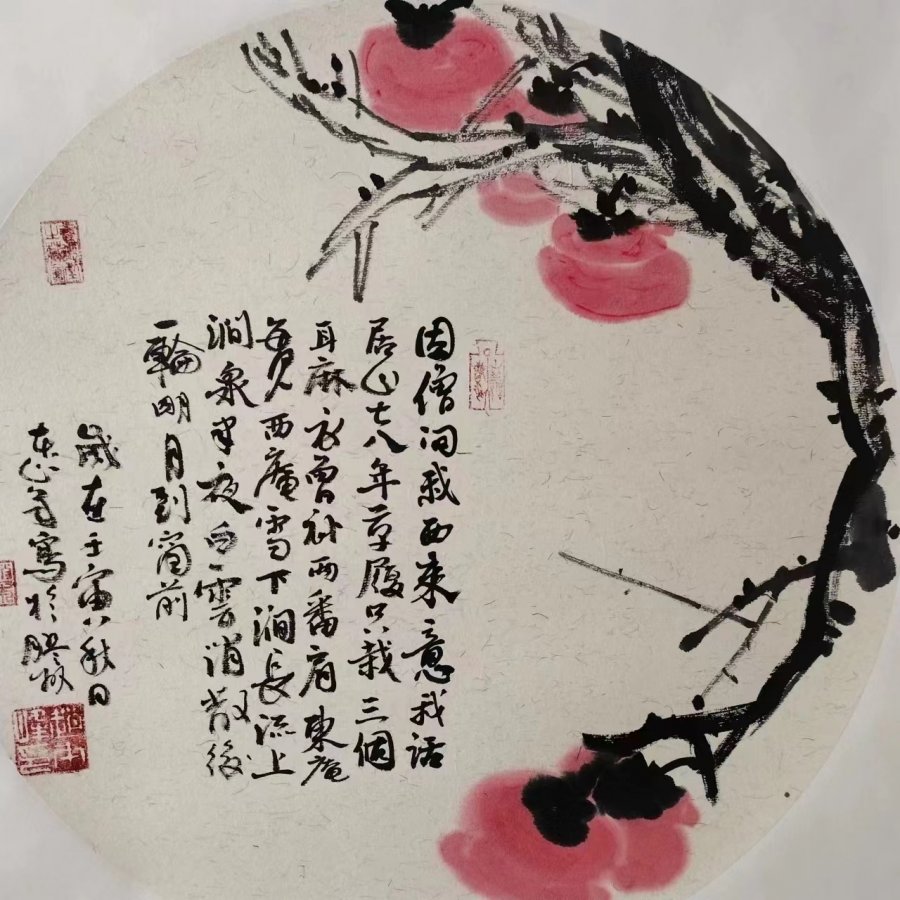 因僧问我西来意我话
居山七八年草履只栽三個
耳麻衣曾补两番肩東庵
每见西庵雪下涧長流上
涧泉半夜白雲消散後
一輪明月到窗前
歲在壬寅八秋日
寫於膠州